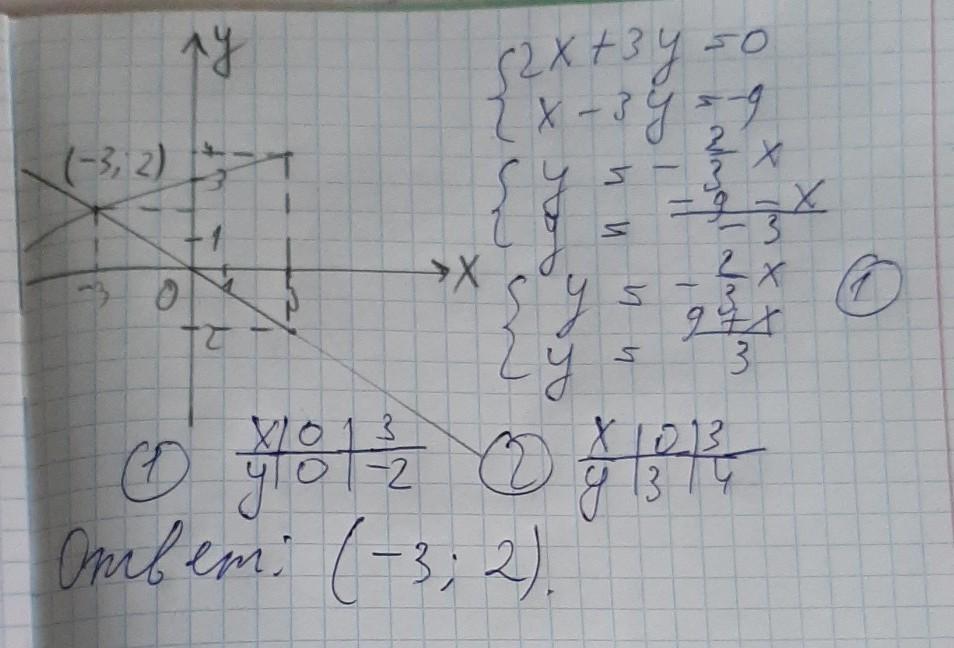 y
(-3; 2)
4
3
1
-3
0
1
3
x
-2
{2x + 3y = 0
{x - 3y = -9
{y = -2/3 x
{y = (-9 - x)/(-3)
{y = -2/3 x ①
{y = (9 + x)/3
① x | 0 | 3
y | 0 | -2
② x | 0 | 3
y | 3 | 4
Ответ: (-3; 2).